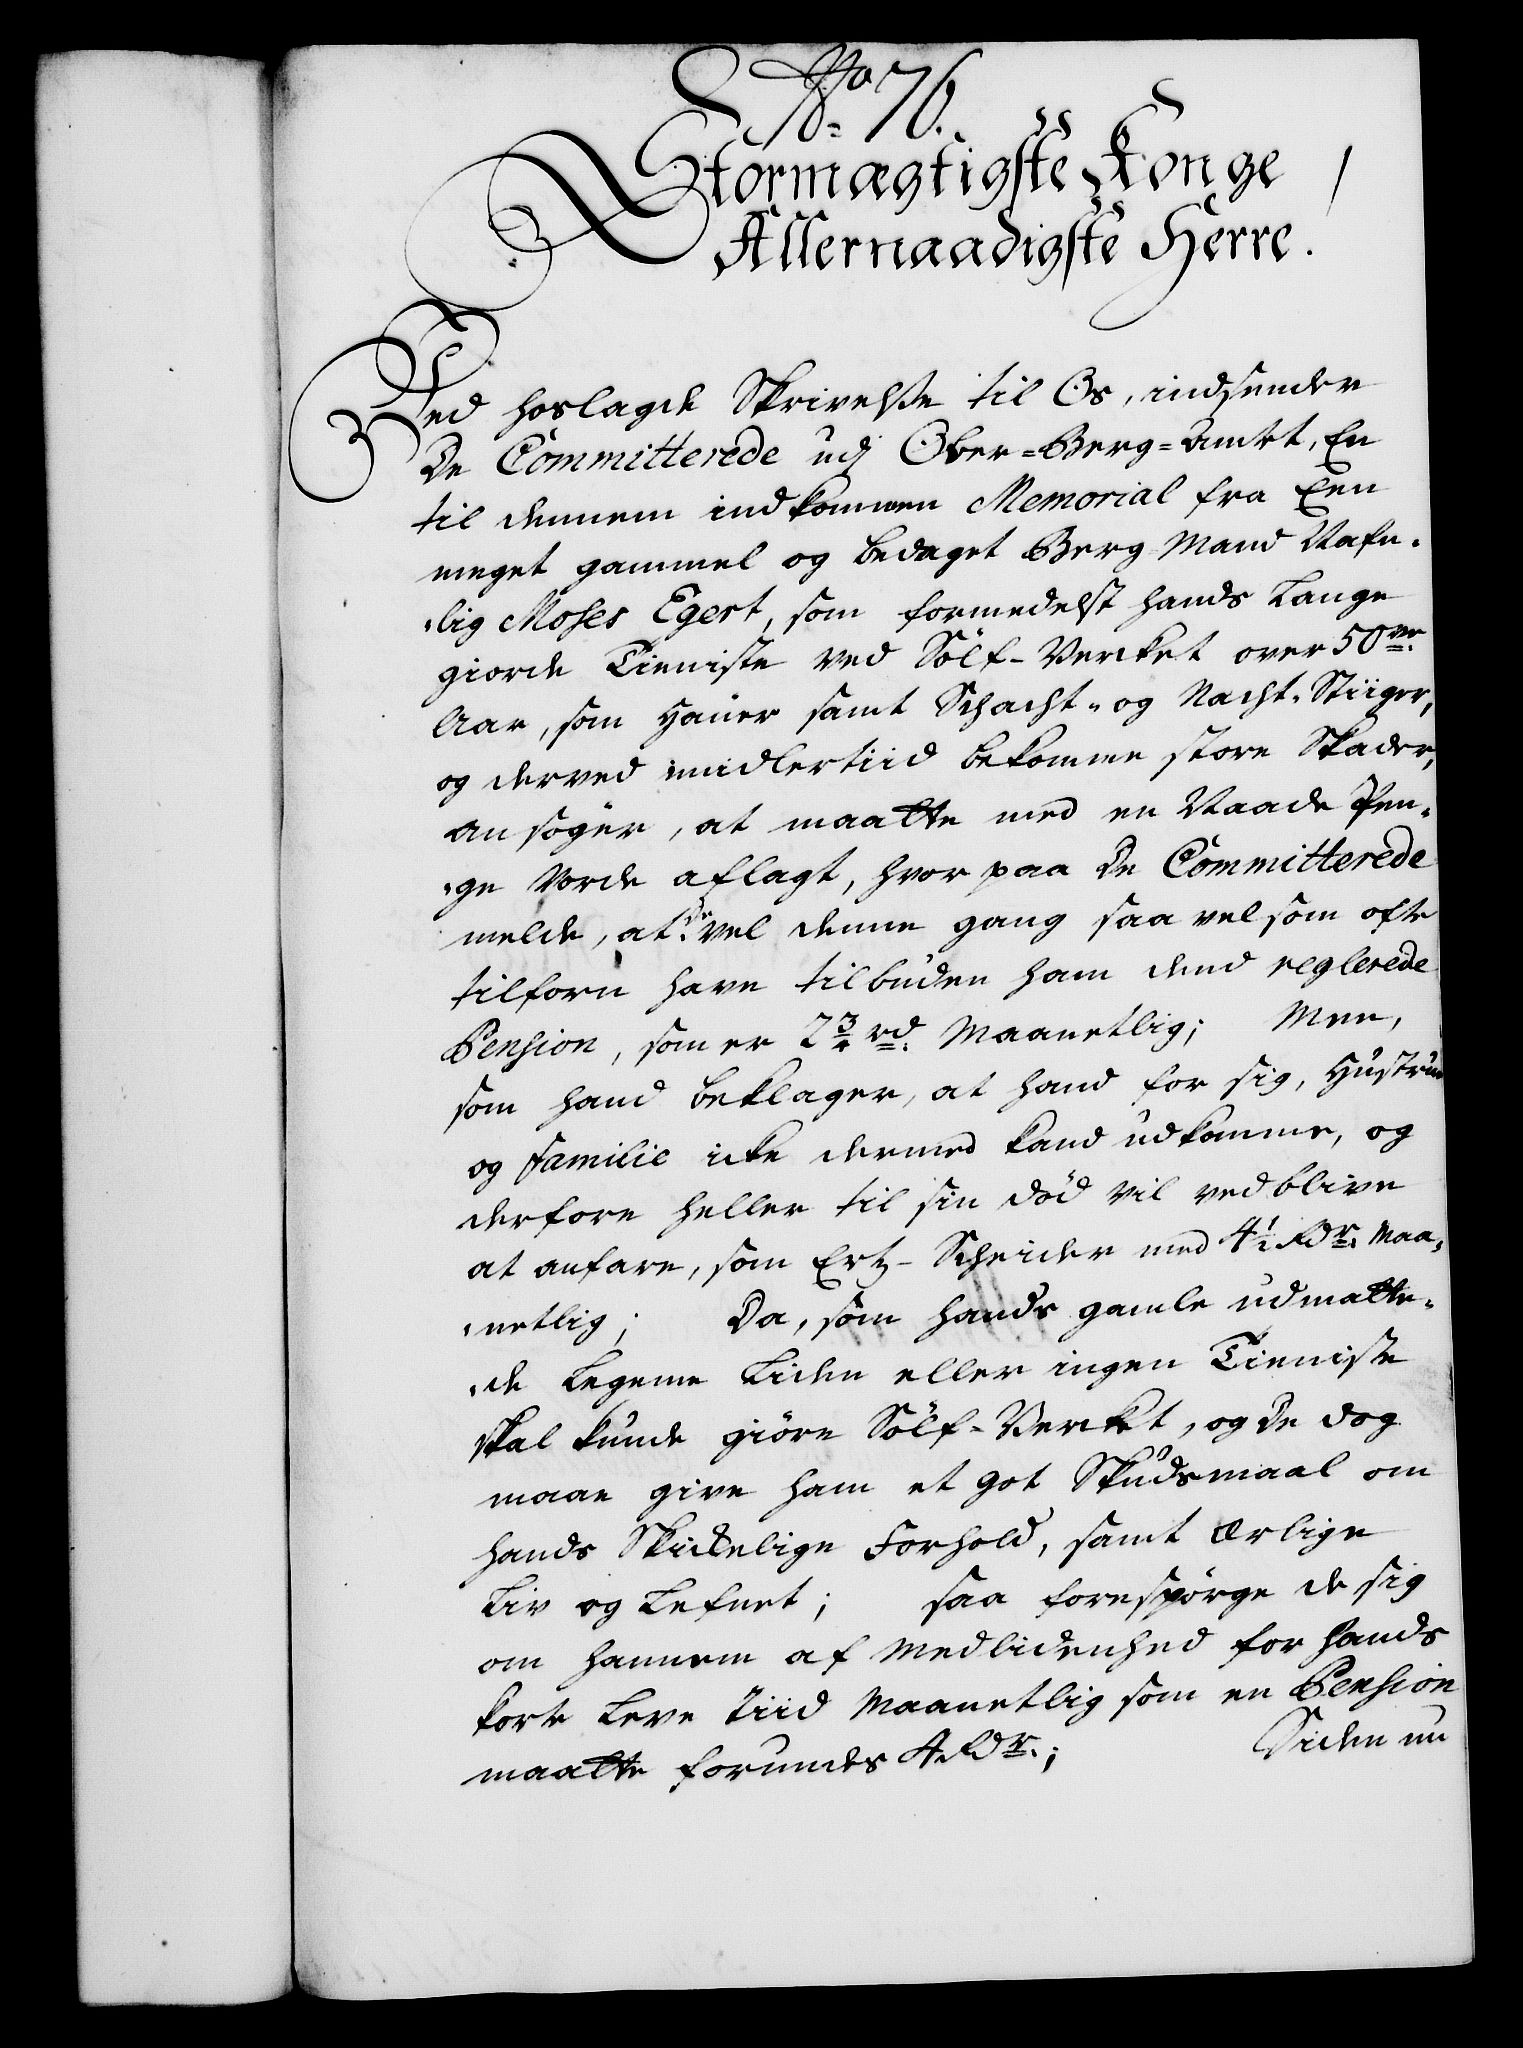 No. 76.
Stormægtigste Konge
Allernaadigste Herre.
Ved hoslagde Skrivelse til Os, indsender
De Committerede udj Ober=Berg=Amtet, En
til dennem indkommen Memorial fra Een
meget gammel og bedaget Berg Mand Nafn-
lig Moses Egert, som formedelst hands Lange
giorde Tieniste ved Sölf-Verket over 50ve.
Aar, som Hauer samt Schacht- og Nacht-Stiiger,
og derved imidlertiid bekomme store Skader,
ansöger, at maatte med en Naade Pen-
ge Vorde aflagt, hvor paa De Committerede
melde, at de vel denne gang saa vel som ofte
tilforn have tilbuden ham dend reglerede
Pension, som er 2 3/4 rd. Maanetlig; Men,
som hand beklager, at hand for sig, Hustrue
og Familie icke dermed kand udkomme, og
derfore heller til sin död vil vedblive
at anfare, som Ertz-Scheider med 4 1/2 Rdr. Maa-
netlig; Da, som hands gamle udmatte-
de Legeme Liden eller ingen Tieniste
skal kunde giöre Sölf-Verket, og De dog
maae give ham et got Skudsmaal om
hands Skickelige Forhold, samt ærlige
Liv og Lefnet; saa forespörge de sig
om hannem af Medlidenhed for hands
korte Leve Tiid Maanetlig som en Pension
maatte forundes 4 Rdr.; Siden nu